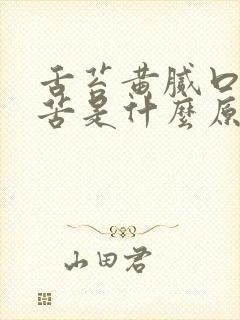 舌苔黄腻口
苦是什麼原
山田君